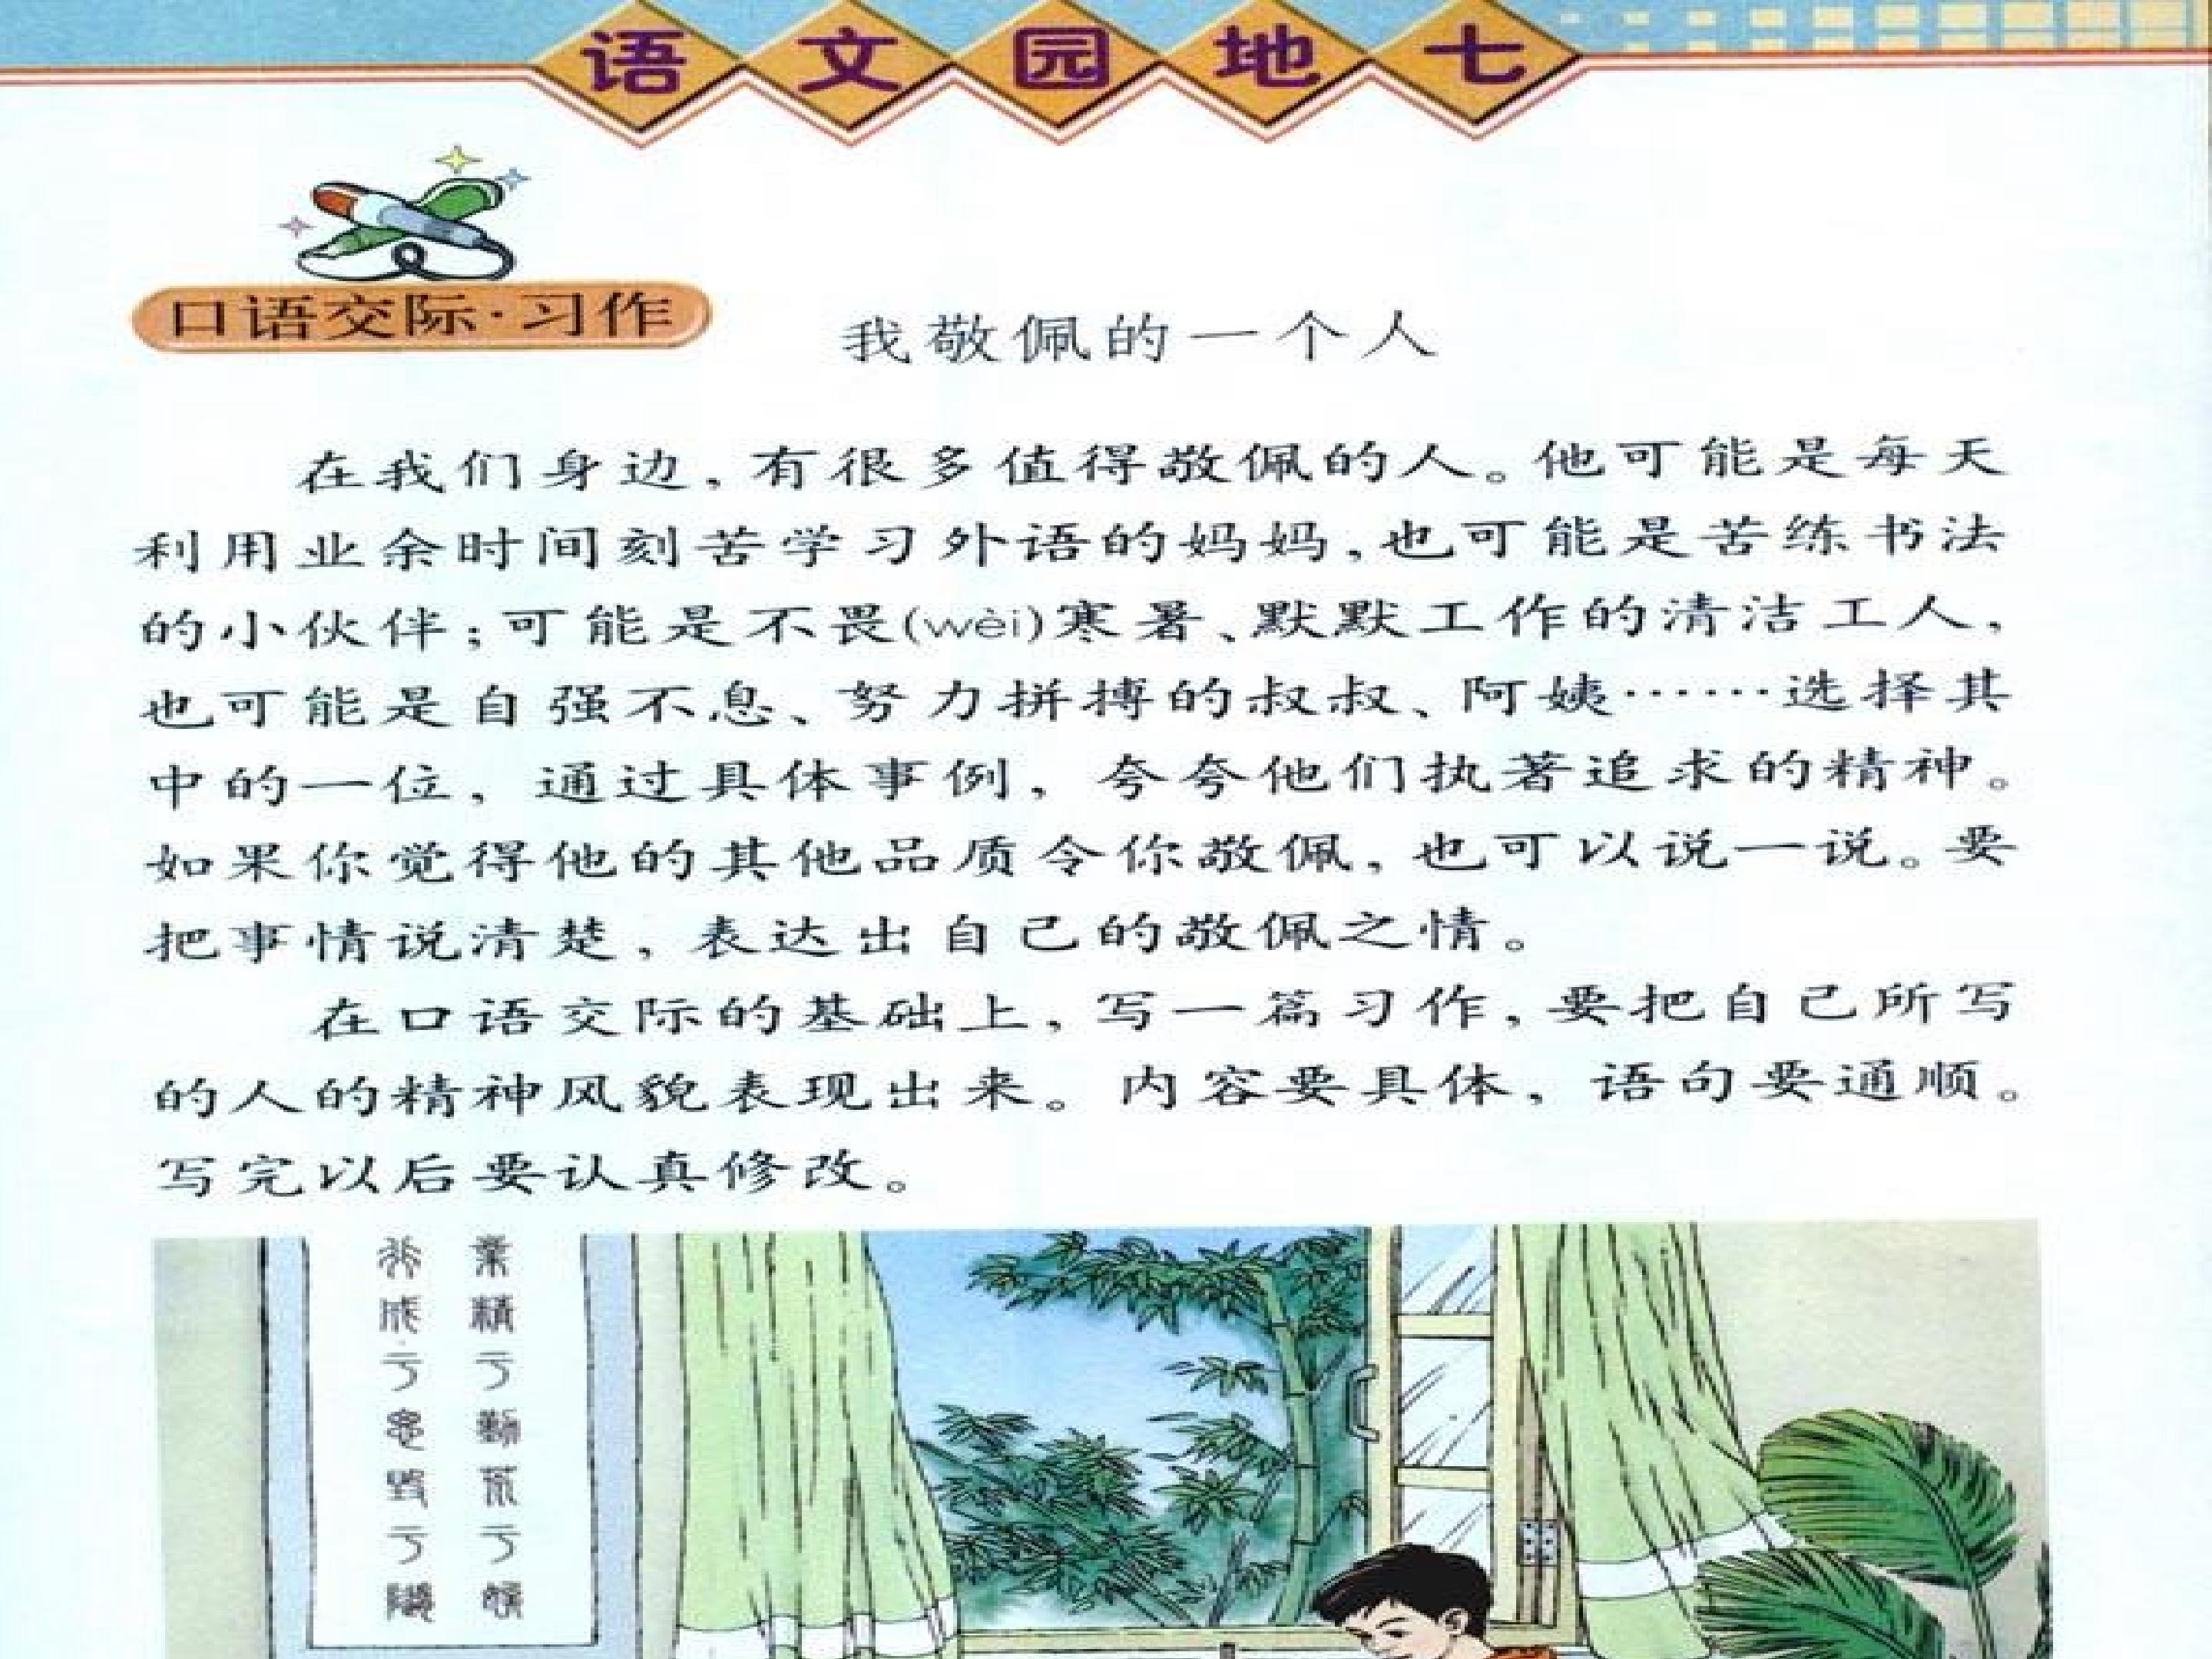 语文园地七
口语交际·习作
我敬佩的一个人
在我们身边，有很多值得敬佩的人。他可能是每天
利用业余时间刻苦学习外语的妈妈，也可能是苦练书法
的小伙伴；可能是不畏(wèi)寒暑、默默工作的清洁工人，
也可能是自强不息、努力拼搏的叔叔、阿姨……选择其
中的一位，通过具体事例，夸夸他们执著追求的精神。
如果你觉得他的其他品质令你敬佩，也可以说一说。要
把事情说清楚，表达出自己的敬佩之情。
在口语交际的基础上，写一篇习作，要把自己所写
的人的精神风貌表现出来。内容要具体，语句要通顺。
写完以后要认真修改。
業精于勤荒于嬉
行成于思毀于隨